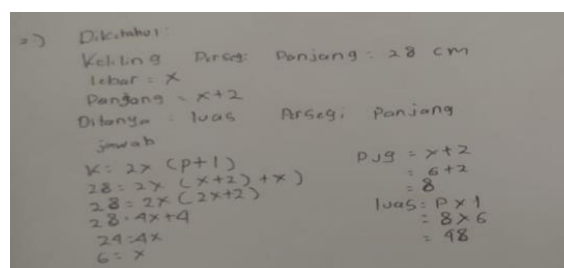 2.) Diketahui:
Keliling Persegi Panjang : 28 cm
lebar = x
Panjang = x+2
Ditanya : luas Persegi Panjang
jawab
K: 2x (p+l)
28: 2x (x+2) +x)
28: 2x (2x+2)
28: 4x+4
24:4x
6 = x
Pjg = x+2
= 6+2
= 8
luas: P x l
= 8x6
= 48